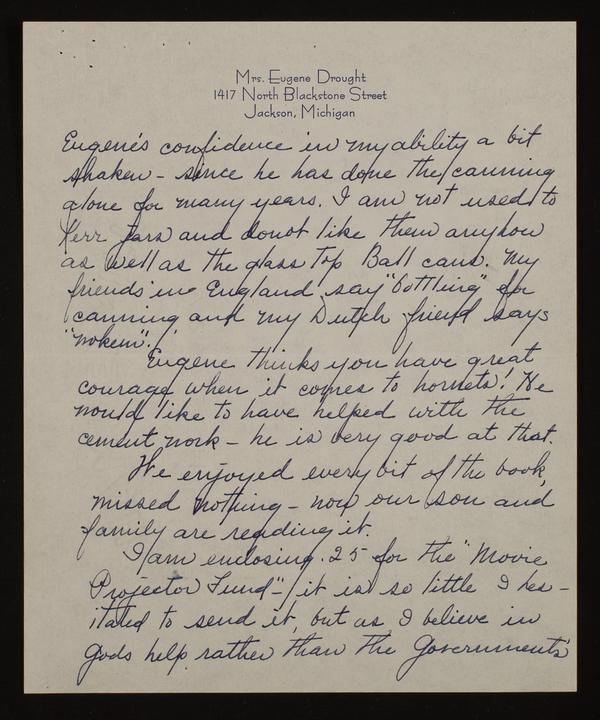 Mrs. Eugene Drought
1417 North Blackstone Street
Jackson, Michigan
Eugene's confidence in my ability a bit
shaken - since he has done the canning
alone for many years. I am not used to
Kerr Jars and donot like them anyhow
as well as the glass top Ball cans. My
friends in England say "bottling" for
canning and my Dutch friend says
Eugene thinks you have great
courage when it comes to hornets! He
would like to have helped with the
cement work - he is very good at that.
We enjoyed every bit of the book,
missed nothing - now our son and
family are reading it.
I am enclosing .25 for the "Movie
Projector Fund" - it is so little I hes-
itated to send it, but as I believe in
Gods help rather than the Governments'